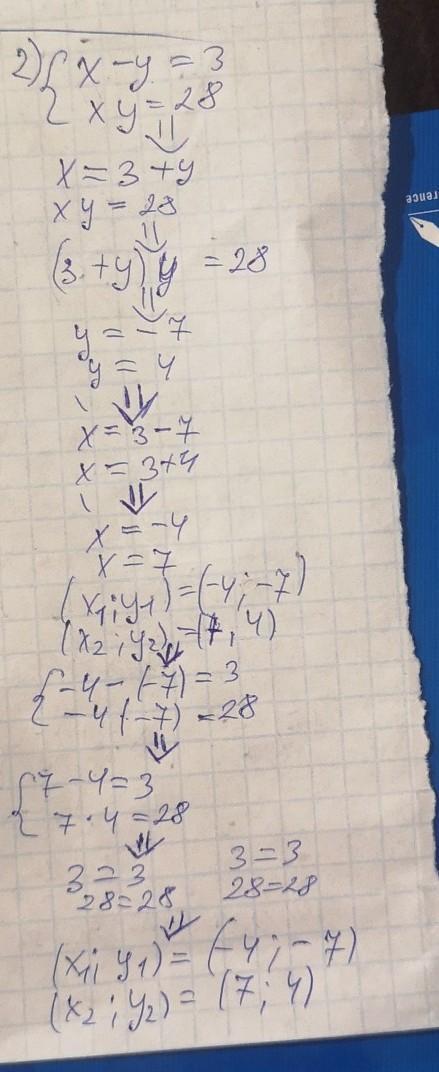 2) { x - y = 3
{ xy = 28
⇓
x = 3 + y
xy = 28
⇓
(3 + y) y = 28
⇓
y = -7
y = 4
⇓
x = 3 - 7
x = 3 + 4
⇓
x = -4
x = 7
(x1; y1) = (-4; -7)
(x2; y2) = (7, 4)
⇓
{ -4 - (-7) = 3
{ -4 (-7) = 28
⇓
{ 7 - 4 = 3
{ 7 · 4 = 28
⇓
3 = 3 3 = 3
28 = 28 28 = 28
⇓
(x1; y1) = (-4; -7)
(x2; y2) = (7; 4)